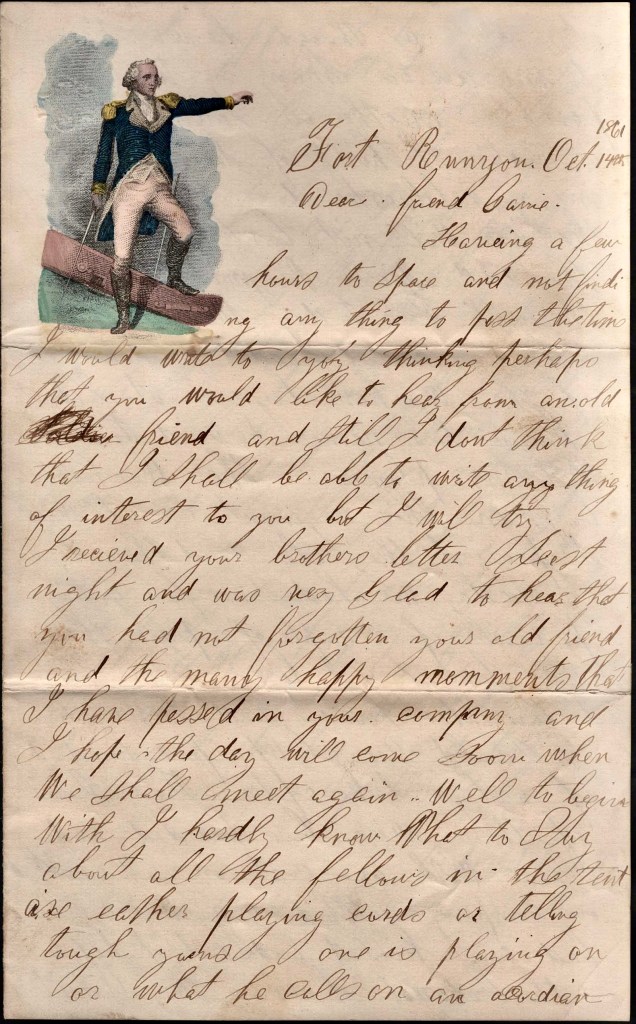 Fort Runyon. Oct. 14th 1861
Dear friend Carrie.
Haveing a few
hours to spare and not findi
ng any thing to pass the time
I would write to you thinking perhaps
that you would like to hear from an old
friend and still I dont think
that I shall be able to write any thing
of interest to you but I will try.
I recieved your brothers letter Last
night and was very Glad to hear that
you had not forgotten your old friend
and the many happy momments that
I have passed in your company and
I hope the day will come soon when
We shall meet again. Well to begin
With I hardly know What to Say
about all the fellows in the tent
are eather playing cards or telling
tough yarns one is playing on
or what he calls on an acordian